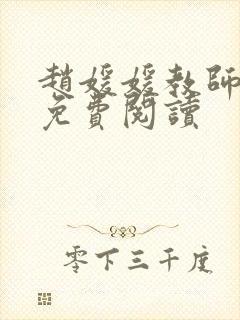 趙媛媛教師
免費閱讀
零下三千度